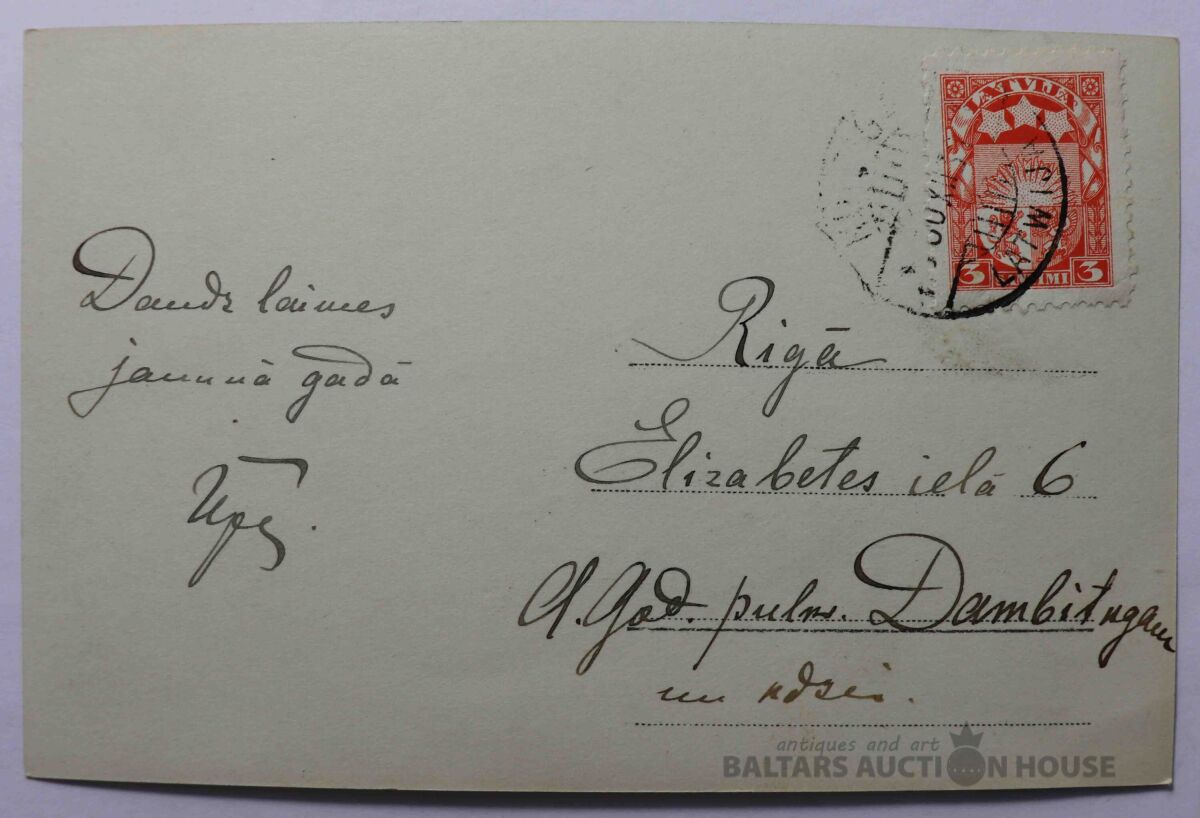 Daudz laimes
jaunnā gadā
LATVIJA
3 3
LATWIJA
Rigā
Elizabetes ielā 6
A. God. pulkv. Dambitu
un
antiques and art
BALTARS AUCTION HOUSE